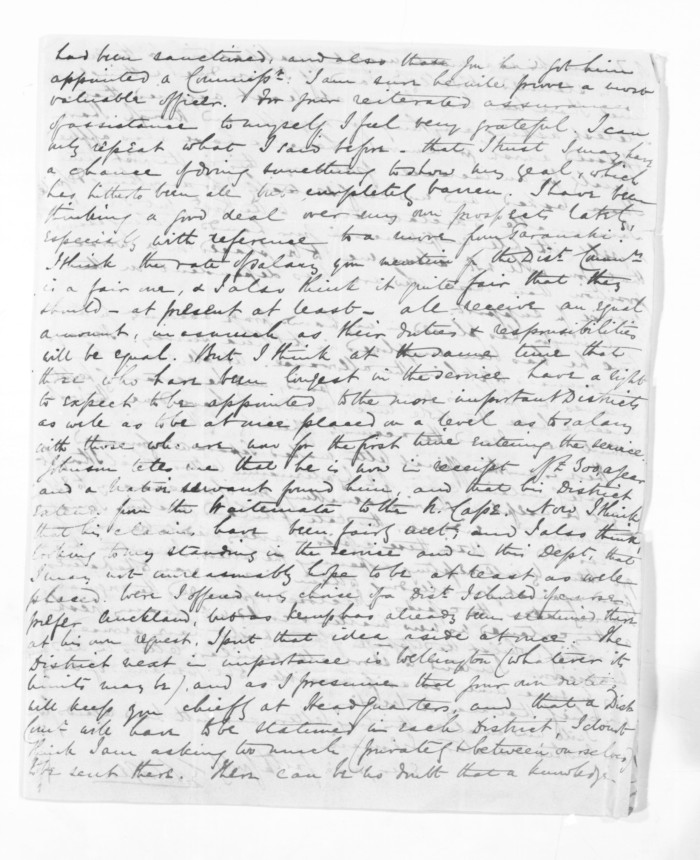 had been sanctioned, and also that you had got him
appointed a Commissr. I am sure he will prove a most
valuable officer. For your reiterated assurance
of assistance to myself I feel very grateful. I can
only repeat what I said before - that I trust I may have
a chance of doing something to show my zeal, which
has hitherto been all but completely barren. I have been
thinking a good deal over my own prospects lately,
especially with reference to a move from Taranaki.
I think the rate of salary you mention for the Dist. Commrs
is a fair one, & I also think it quite fair that they
should - at present at least - all receive an equal
amount, inasmuch as their duties & responsibilities
will be equal. But I think at the same time that
those who have been longest in the service have a right
to expect to be appointed to the more important Districts
as well as to be at once placed on a level as to salary
with those who are now for the first time entering the service.
Johnson tells me that he is now in receipt of £300 a year
and a Native servant found him, and that his District
extends from the Waitemata to the N. Cape. Now I think
that his claims have been fairly met, and I also think,
looking to my standing in the service and in this Dept. that
I may not unreasonably hope to be at least as well
placed. Were I offered my choice of a Dist. I should of course
prefer Auckland, but as Kemp has already been stationed there
at his own request, I put that idea aside at once. The
District next in importance is Wellington (whatever its
limits may be), and as I presume that your own duties
will keep you chiefly at Head Quarters, and that a Dist.
Commr. will have to be stationed in each District, I don't
think I am asking too much privately & between ourselves
to be sent there. There can be no doubt that a knowledge